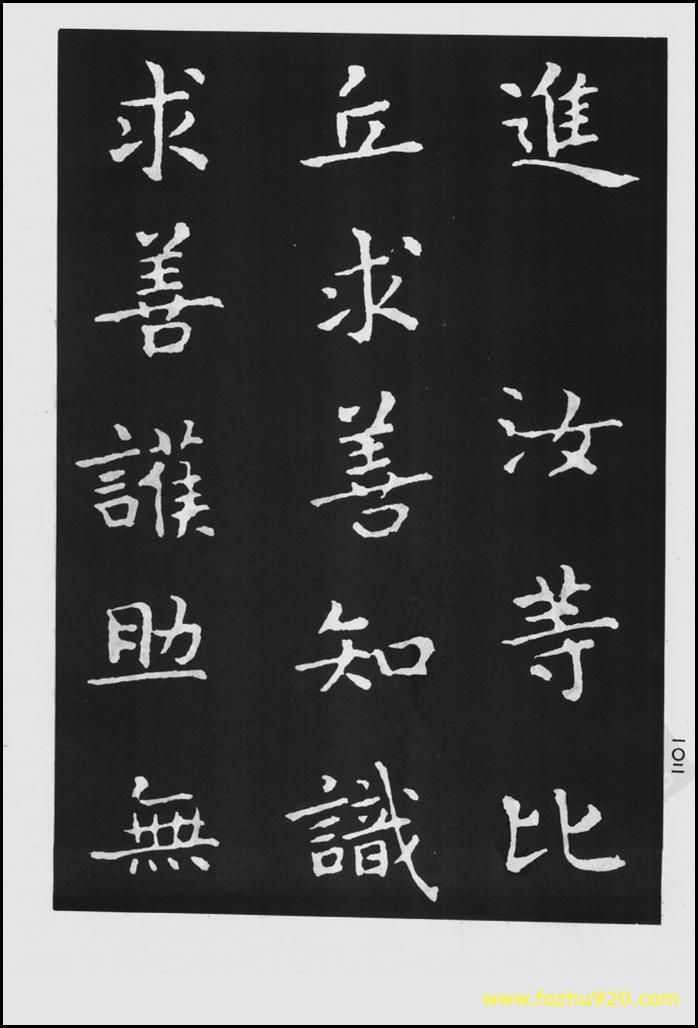 進 汝等比
丘求善知識
求善護助無
1101
www.fozhu920.com